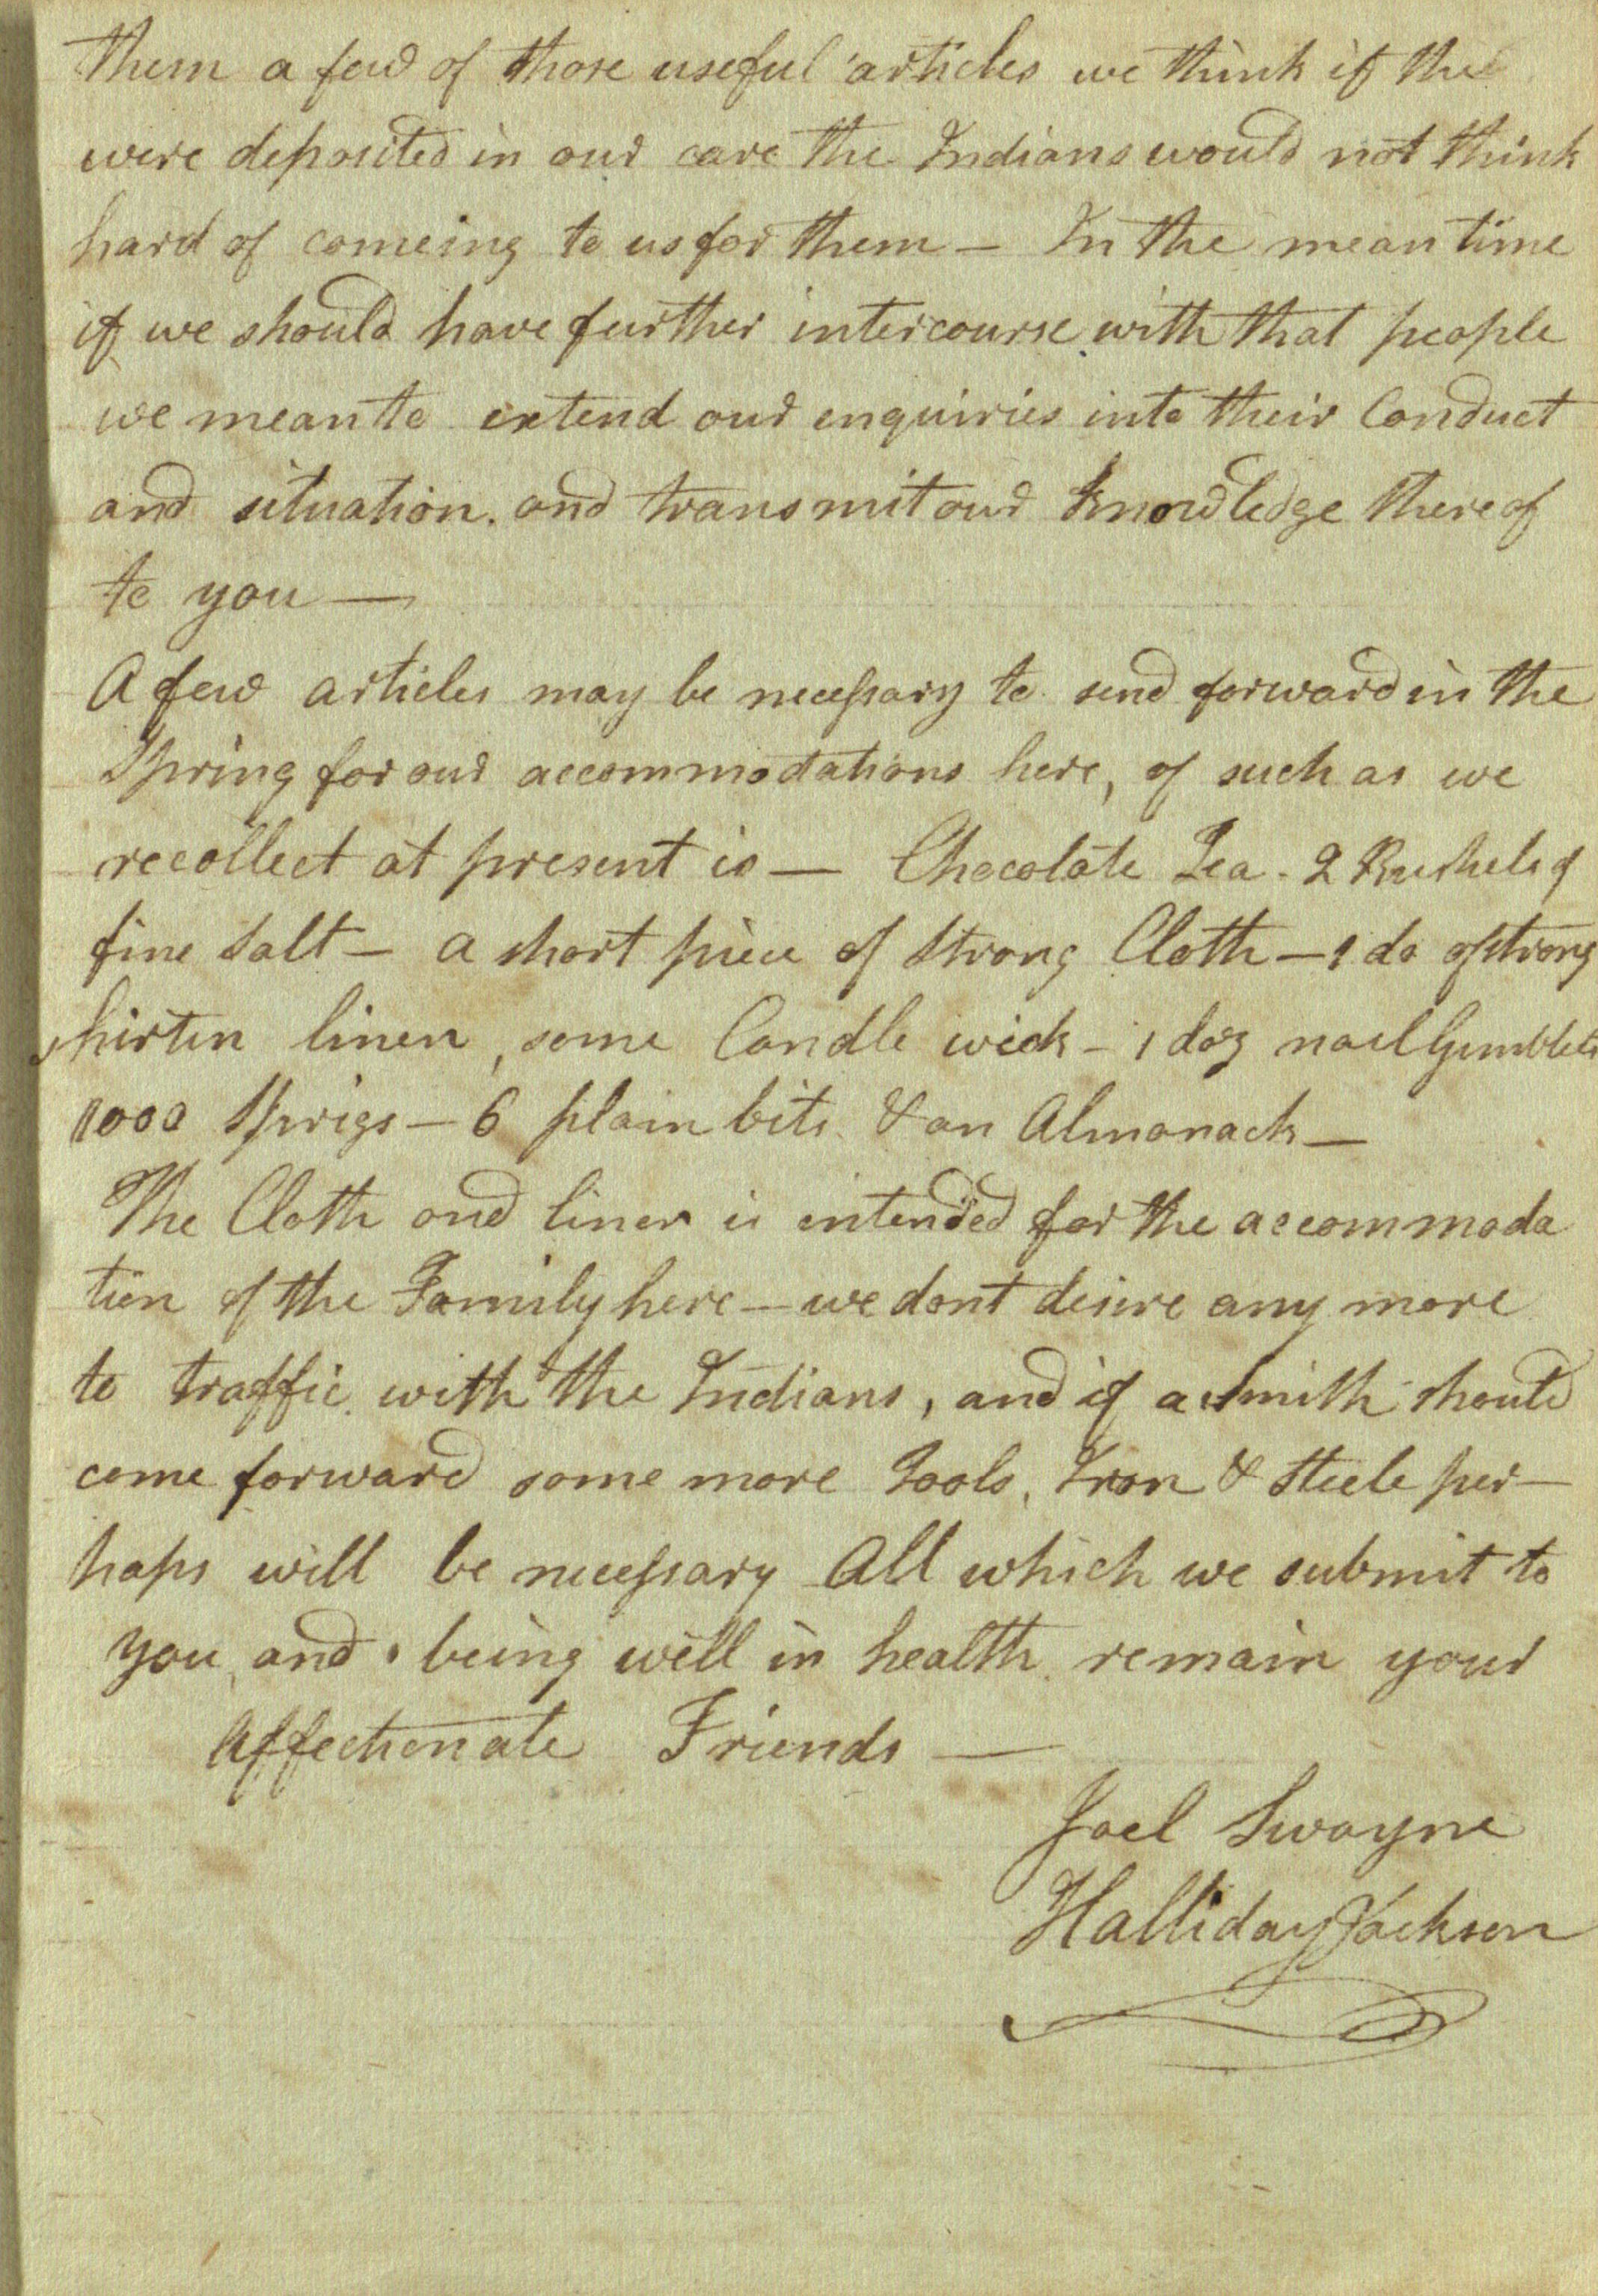 them a few of those useful articles we think if the
were deposited in our care the Indians would not think
hard of comeing to us for them — In the mean time
if we should have further intercourse with that people
we mean to extend our enquiries into their Conduct
and situation. and transmit our knowledge thereof
to you —
A few articles may be necessary to send forward in the
Spring for our accommodations here, of such as we
recollect at present is — Chocolate Tea - 2 Bushels of
fine Salt — a short piece of Strong Cloth — 1 do of strong
shirten linen, some Candle wick - 1 doz nail Gimblets
1000 Sprigs — 6 plain bits & an Almanack —
The Cloth and linen is intended for the accommoda
tion of the Family here — we dont desire any more
to traffic with the Indians, and if a Smith should
come forward some more Tools, Iron & Steele per—
haps will be necessary All which we submit to
you, and being well in health remain your
Affectionate Friends —
Joel Swayne
Halliday Jackson